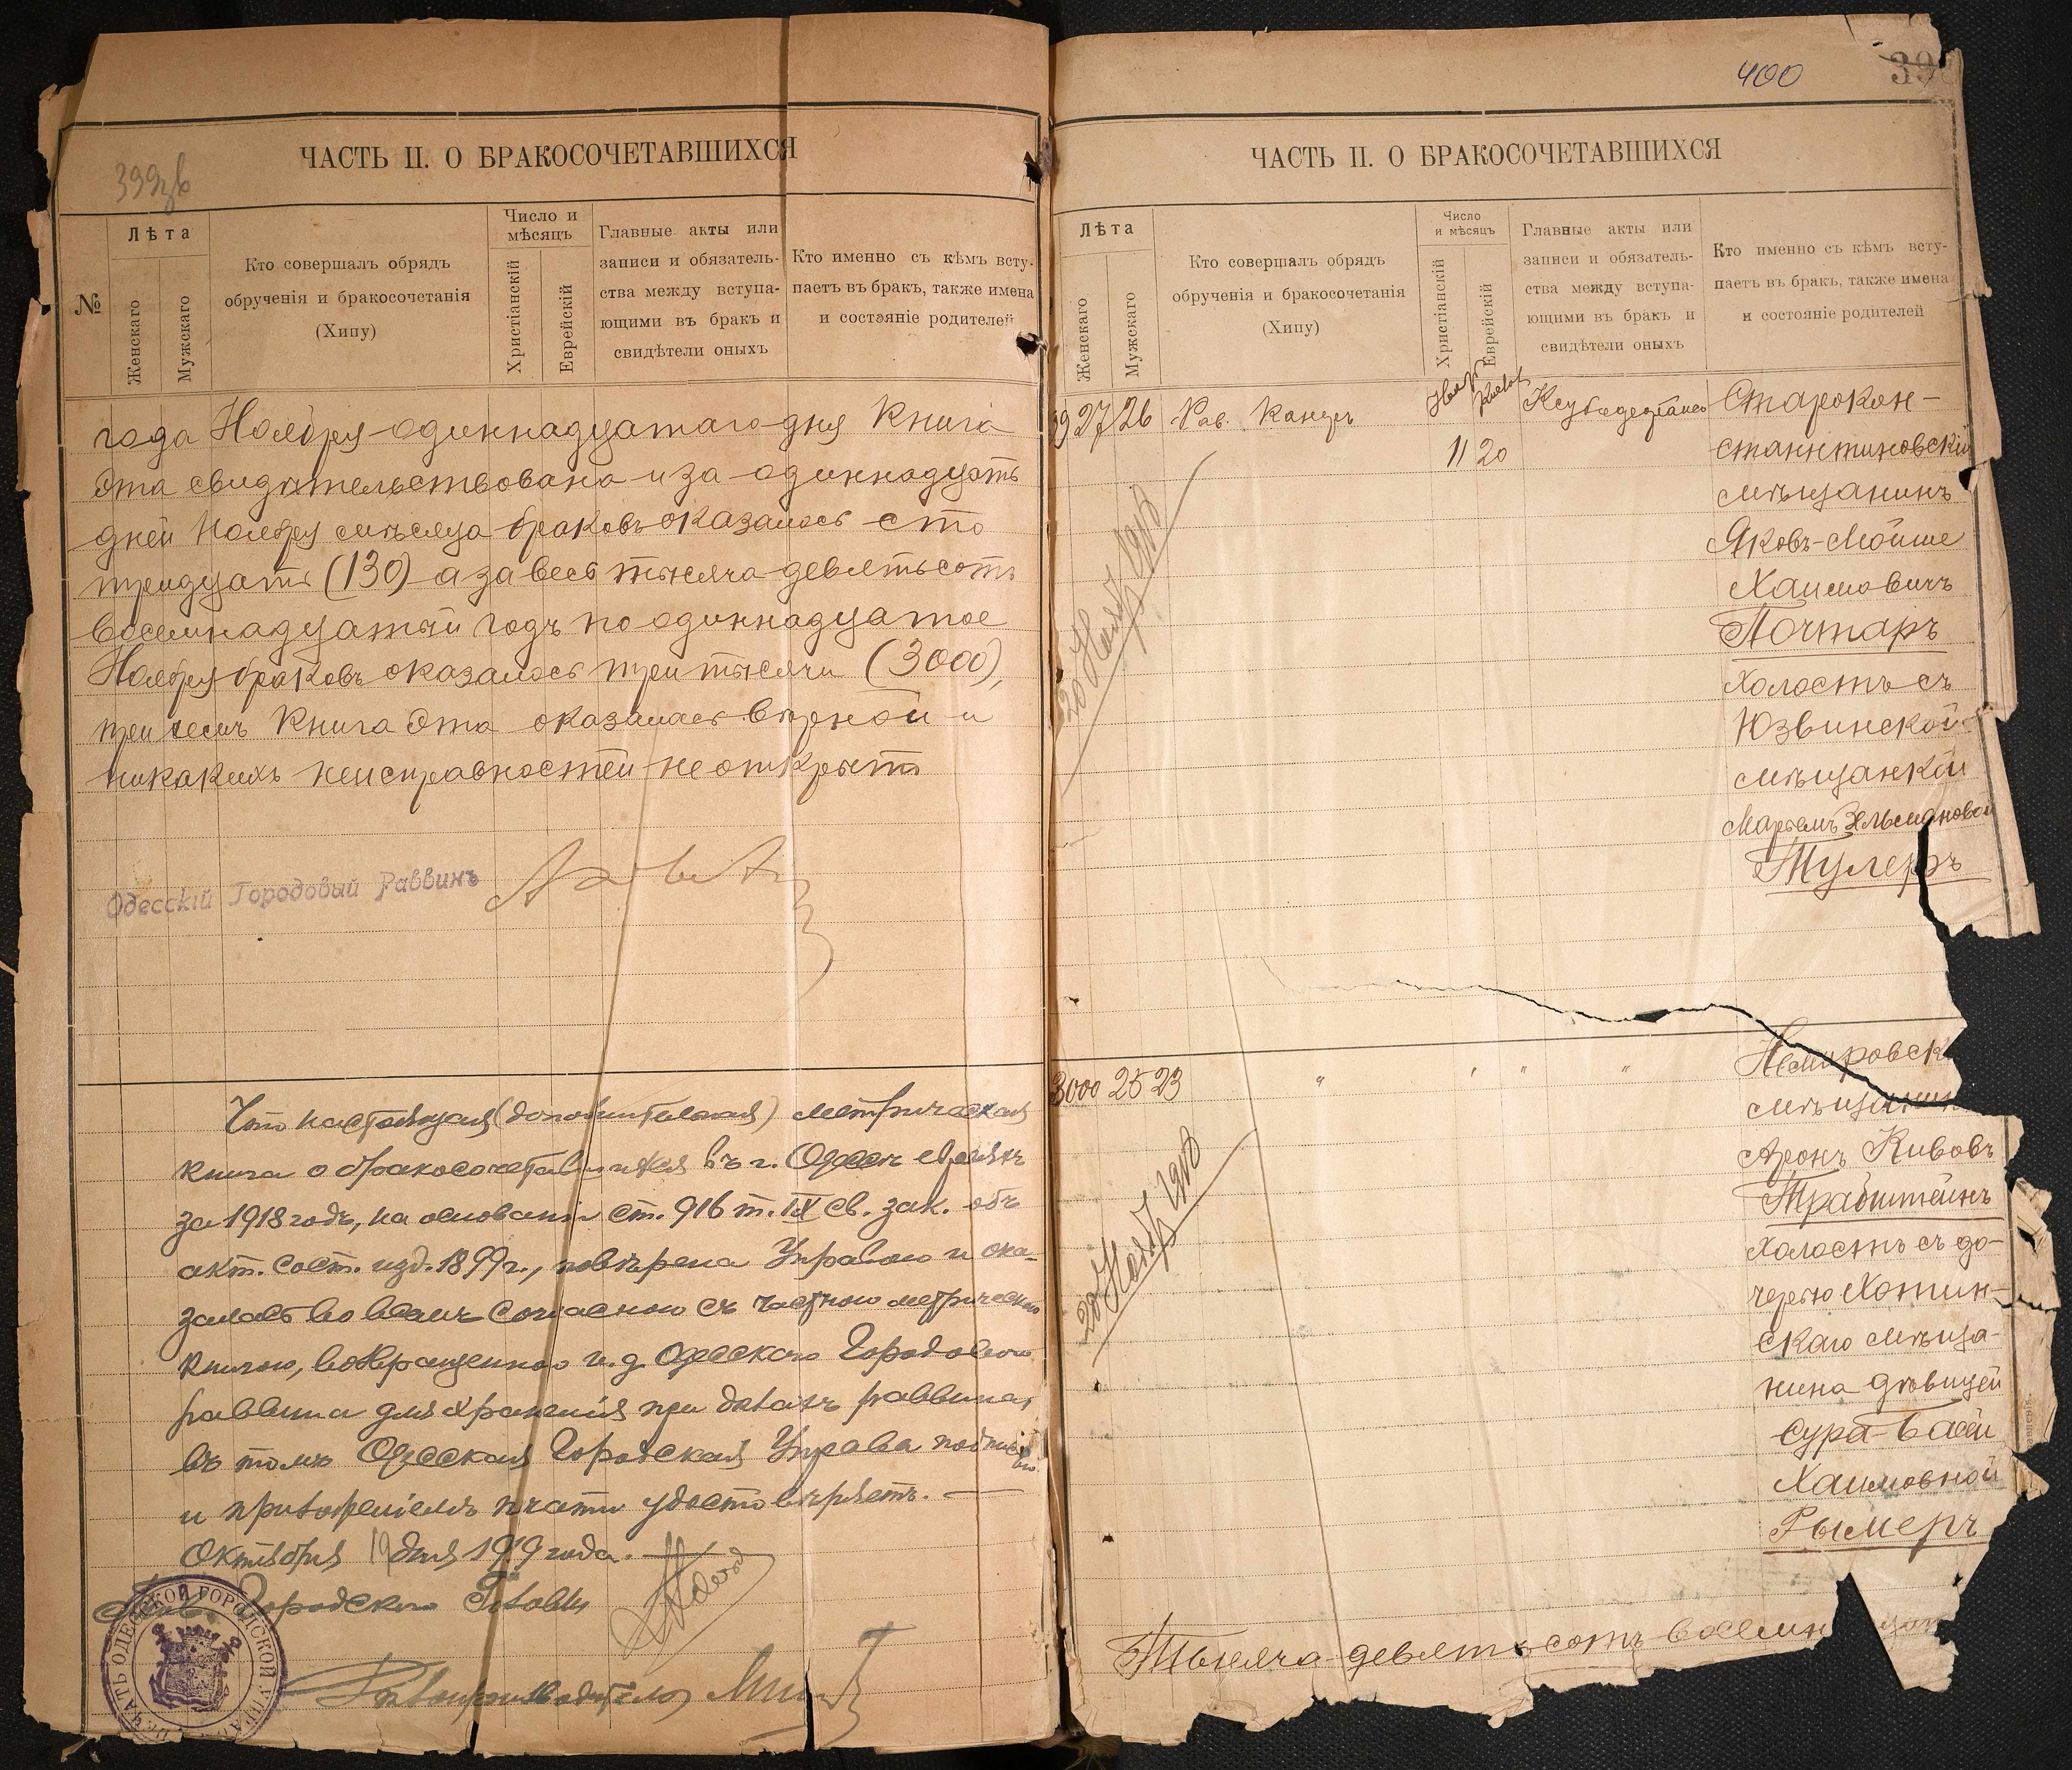 399об
ЧАСТЬ II. О БРАКОСОЧЕТАВШИХСЯ
№
Лѣта
Женскаго
Мужскаго
Кто совершалъ обрядъ
обрученія и бракосочетанія
(Хипу)
Число и
мѣсяцъ
Христіанскій
Еврейскій
Главные акты или
записи и обязатель-
ства между вступа-
ющими въ бракъ и
свидѣтели оныхъ
Кто именно съ кѣмъ всту-
паетъ въ бракъ, также имена
и состояніе родителей
года Ноября одиннадцатаго дня Книга
эта свидѣтельствована и за одиннадцать
дней Ноября мѣсяца браковъ оказалось сто
тридцать (130) а за весь тысяча девятьсотъ
восемнадцатый годъ по одиннадцатое
Ноября браковъ оказалось три тысячи (3000),
при чемъ Книга эта оказалась вѣрной и
никакихъ неисправностей не открыто
Одесскій Городовый Раввинъ
Что настоящая (дополнительная) метрическая
книга о бракосочетавшихся въ г. Одессѣ евреяхъ
за 1918 годъ, на основаніи ст. 916 т. IX св. зак. объ
акт. сост. изд. 1899 г., повѣрена Управою и ока-
залась во всемъ согласною съ частною метрическою
книгою, возвращенною и. д. Одесскаго Городового
раввина для храненія при дѣлахъ раввина,
въ томъ Одесская Городская Управа подписью
и приложеніемъ печати удостовѣряетъ.
Октября 19 дня 1919 года.
Городского Головы
Дѣлопроизводитель
ПЕЧАТЬ ОДЕССКОЙ ГОРОДСКОЙ УПРАВЫ
400
39
ЧАСТЬ II. О БРАКОСОЧЕТАВШИХСЯ
Лѣта
Женскаго
Мужскаго
Кто совершалъ обрядъ
обрученія и бракосочетанія
(Хипу)
Число
и мѣсяцъ
Христіанскій
Еврейскій
Главные акты или
записи и обязатель-
ства между вступа-
ющими въ бракъ и
свидѣтели оныхъ
Кто именно съ кѣмъ всту-
паетъ въ бракъ, также имена
и состояніе родителей
99 27 26 Рав. Канцъ Нояр Старокон-
11 20 стантиновскій
мѣщанинъ
Яковъ-Мойше
Хаимовичъ
Почтаръ
холостъ съ
Юзвинской
мѣщанкой
Марьемъ Зельмановой
Тулеръ
20 Ноября 1918
3000 25 23 " " " " Немировск
мѣщанин
Аронъ Кивовъ
Трабштейнъ
холостъ съ до-
черью Хотин-
скаго мѣща-
нина дѣвицей
Сура-Басей
Хаимовной
Рымеръ
20 Ноября 1918
Тысяча девятьсотъ восемн